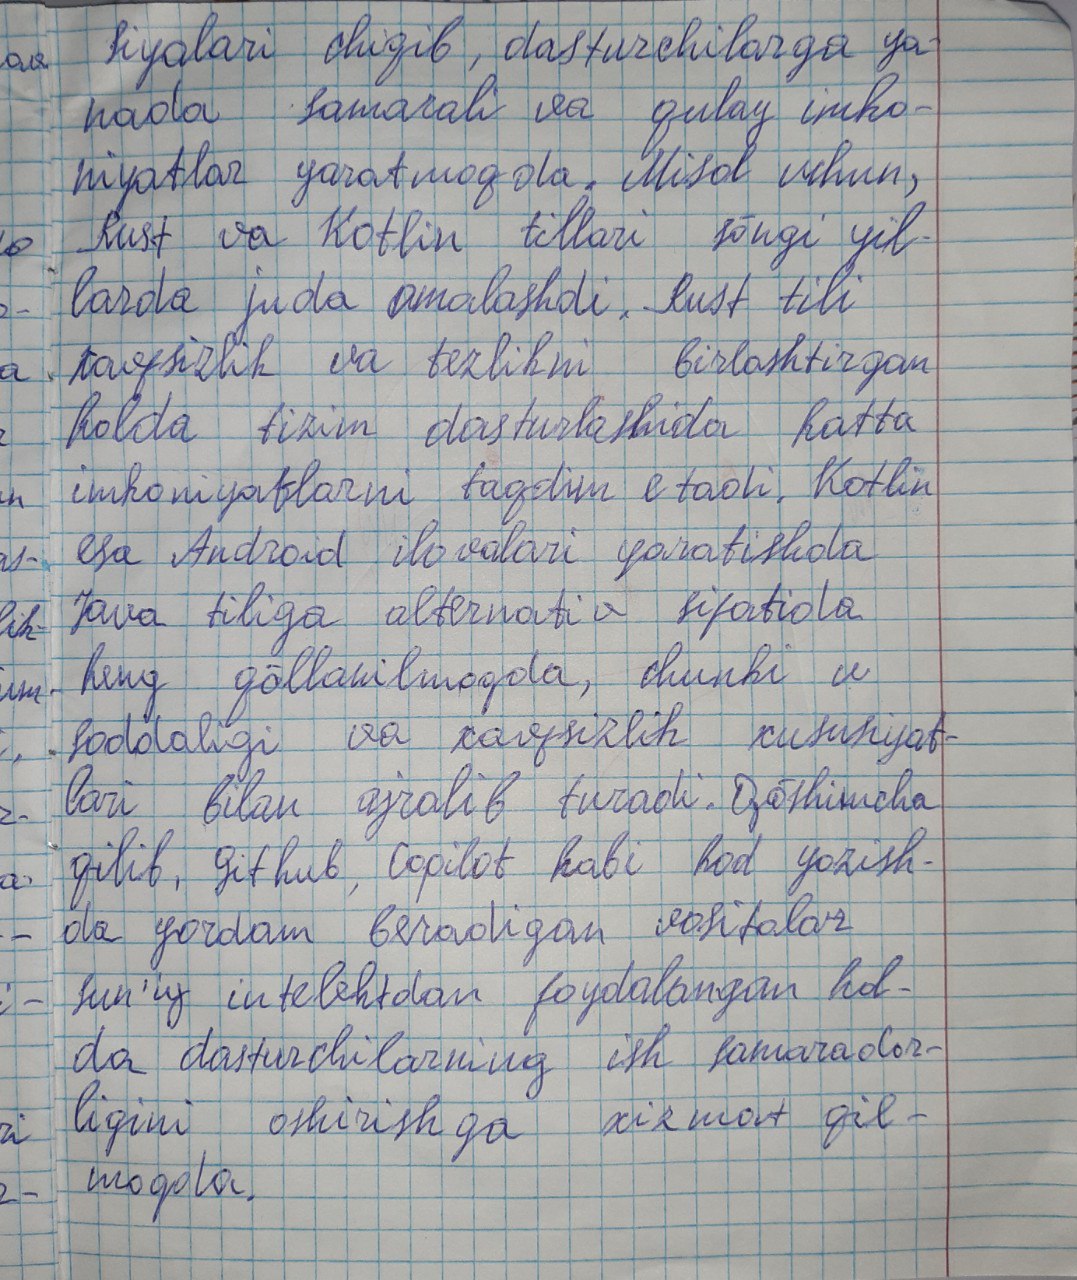 siyalari chiqib, dasturchilarga ya-
nada samarali va qulay imko-
niyatlar yaratmoqda. Misol uchun,
Rust va Kotlin tillari sõngi yil-
larda juda omalashdi. Rust tili
xavfsizlik va tezlikni birlashtirgan
holda tizim dasturlashida katta
imkoniyatlarni taqdim etadi. Kotlin
esa Android ilovalari yaratishda
Java tiliga alternativ sifatida
keng qõllanilmoqda, chunki u
soddaligi va xavfsizlik xususiyat-
lari bilan ajralib turadi. Qõshimcha
qilib, Github, Copilot kabi kod yozish-
da yordam beradigan vositalar
sun'iy intelektdan foydalangan hol-
da dasturchilarning ish samarador-
ligini oshirishga xizmat qil-
moqda.